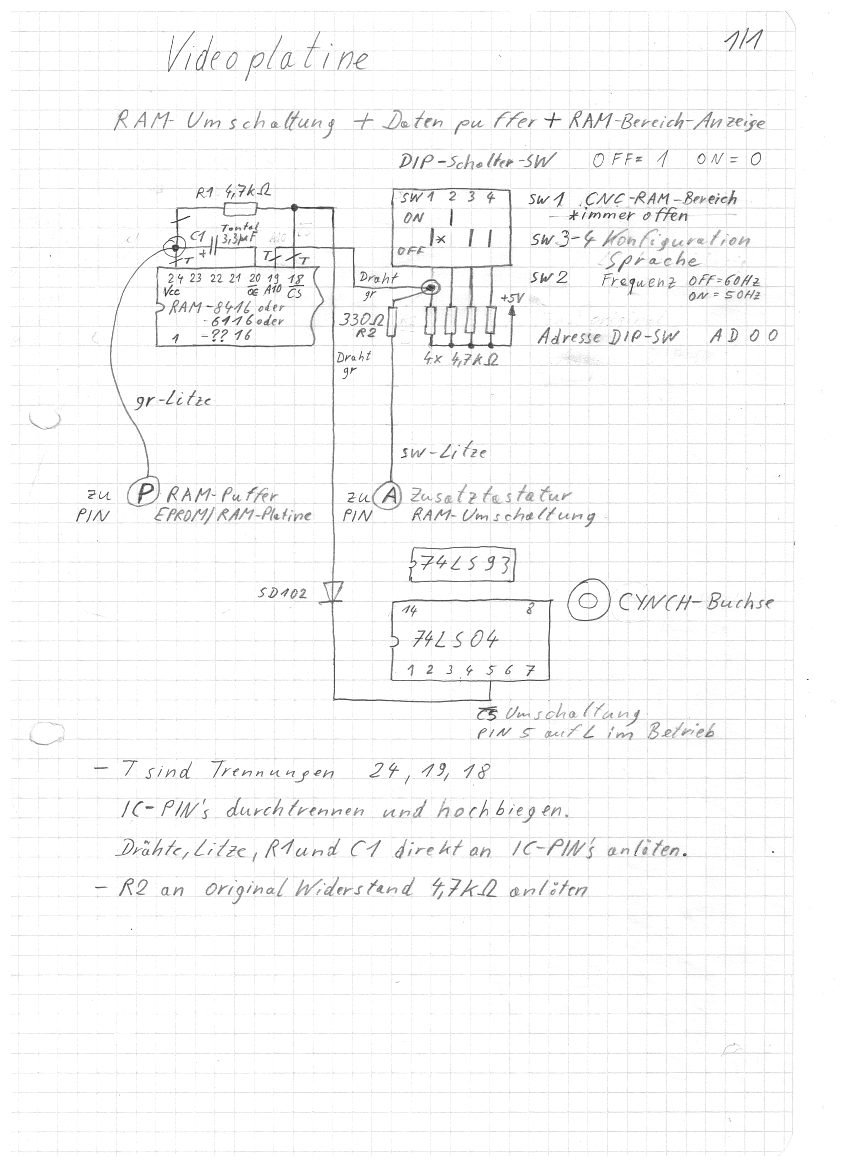 1/1
Videoplatine
RAM-Umschaltung + Datenpuffer + RAM-Bereich-Anzeige
DIP-Schalter-SW OFF=1 ON=0
R1 4,7kΩ
SW1 2 3 4
ON
OFF
*
SW1 CNC-RAM-Bereich
*immer offen
SW3-4 Konfiguration
Sprache
SW2 Frequenz OFF=60Hz
ON=50Hz
C1 Tantal
3,3µF
+
T T T
24 23 22 21 20 19 18
Vcc OE A10 CS
RAM-8416 oder
-6116 oder
-??16
1
Draht
gr
+5V
330Ω
R2
4x 4,7kΩ
Adresse DIP-SW AD00
Draht
gr
gr-Litze
SW-Litze
zu P RAM-Puffer
PIN EPROM/RAM-Platine
zu A Zusatztastatur
PIN RAM-Umschaltung
74LS93
SD102
14 8
74LS04
1 2 3 4 5 6 7
CYNCH-Buchse
CS Umschaltung
PIN 5 auf L im Betrieb
- T sind Trennungen 24, 19, 18
IC-PIN's durchtrennen und hochbiegen.
Drähte, Litze, R1 und C1 direkt an IC-PIN's anlöten.
- R2 an original Widerstand 4,7KΩ anlöten